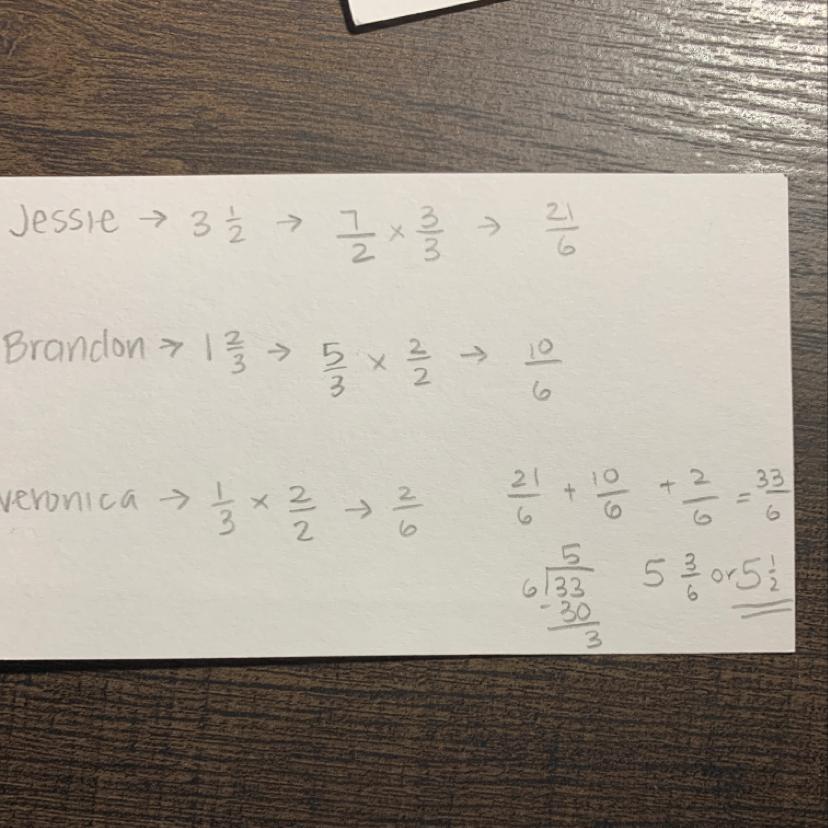 Jessie → 3 1/2 → 7/2 × 3/3 → 21/6
Brandon → 1 2/3 → 5/3 × 2/2 → 10/6
veronica → 1/3 × 2/2 → 2/6
21/6 + 10/6 + 2/6 = 33/6
5
6)33
-30
3
5 3/6 or 5 1/2